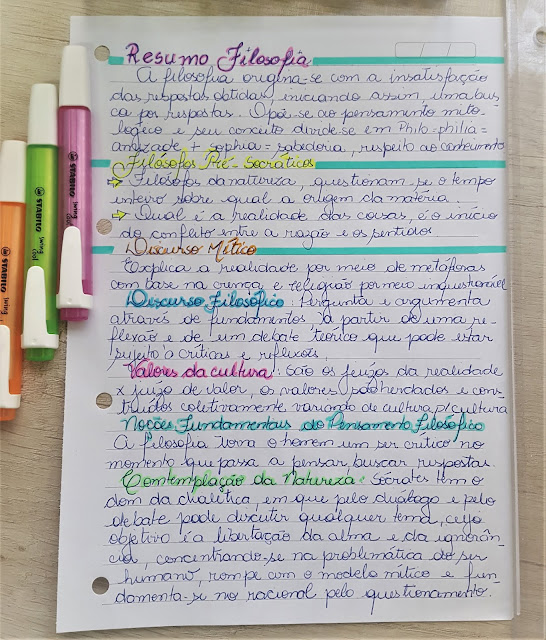 Resumo Filosofia
A filosofia origina-se com a insatisfação
das respostas obtidas, iniciando assim, uma bus
ca por respostas. Opõe-se ao pensamento mito-
lógico e seu conceito divide-se em Philo = philia =
amizade, sophia = sabedoria, respeito ao conhecimento
Filósofos Pré-Socráticos
⇒ Filósofos da natureza, questionam-se o tempo
inteiro sobre qual a origem da matéria.
⇒ Qual é a realidade das coisas, é o início
do conflito entre a razão e os sentidos.
Discurso Mítico
Explica a realidade por meio de metáforas
com base na crença e religião por meio inquestionável
Discurso Filosófico: Pergunta e argumenta
através de fundamentos à partir de uma re-
flexão e de um debate teórico que pode estar
sujeito à críticas e reflexões.
Valores da cultura: São os juízos da realidade
x juízo de valor, os valores são herdados e cons-
truídos coletivamente variando de cultura p/ cultura
Noções Fundamentais do Pensamento Filosófico
A filosofia torna o homem um ser crítico no
momento que passa a pensar, buscar respostas.
Contemplação da Natureza: Sócrates tem o
dom da dialética, em que pelo diálogo e pelo
debate pode discutir qualquer tema, cujo
objetivo é a libertação da alma e da ignorân-
cia, concentrando-se na problemática do ser
humano, rompe com o modelo mítico e fun-
damenta-se no racional pelo questionamento.
STABILO swing cool
STABILO swing cool
STABILO swing cool